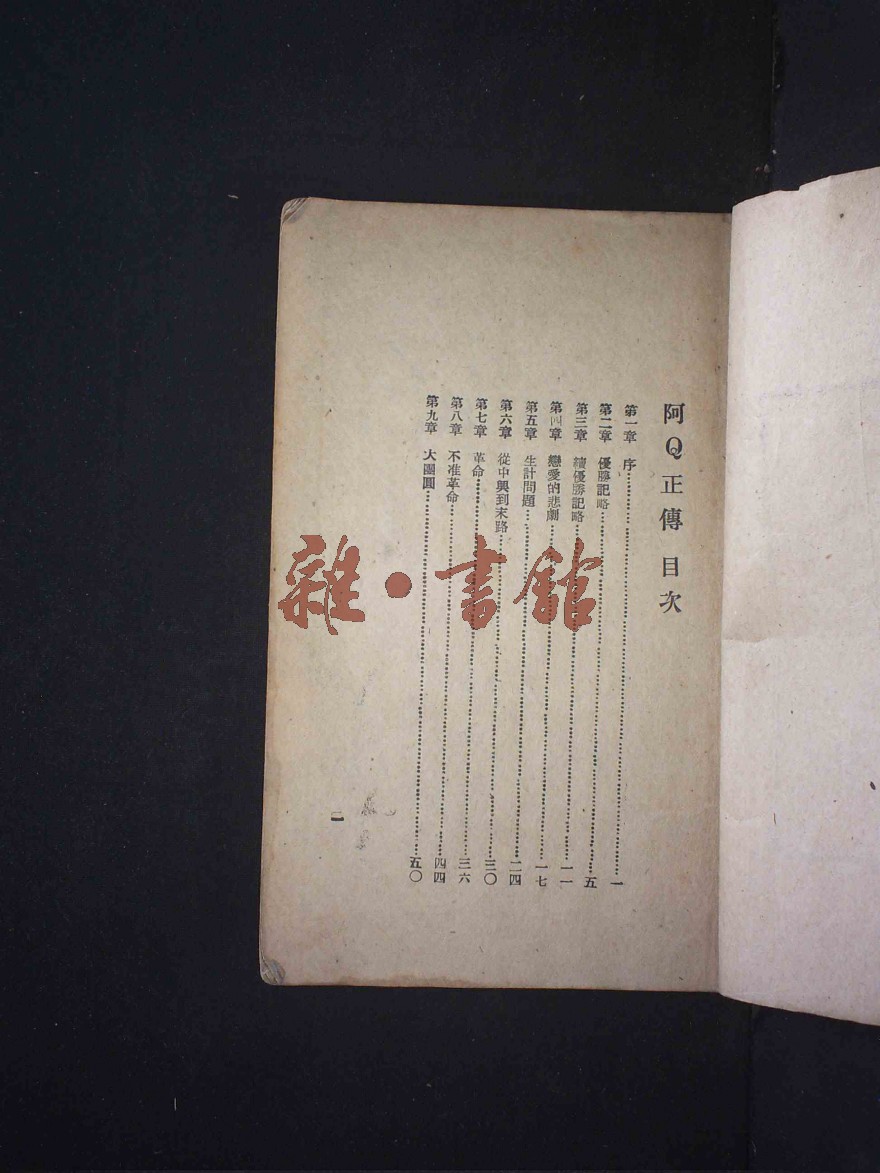 阿Q正傳 目次
第一章 序…………一
第二章 優勝記略…………五
第三章 續優勝記略…………一一
第四章 戀愛的悲劇…………一七
第五章 生計問題…………二四
第六章 從中興到末路…………三〇
第七章 革命…………三六
第八章 不准革命…………四四
第九章 大團圓…………五〇
二
雜·書館